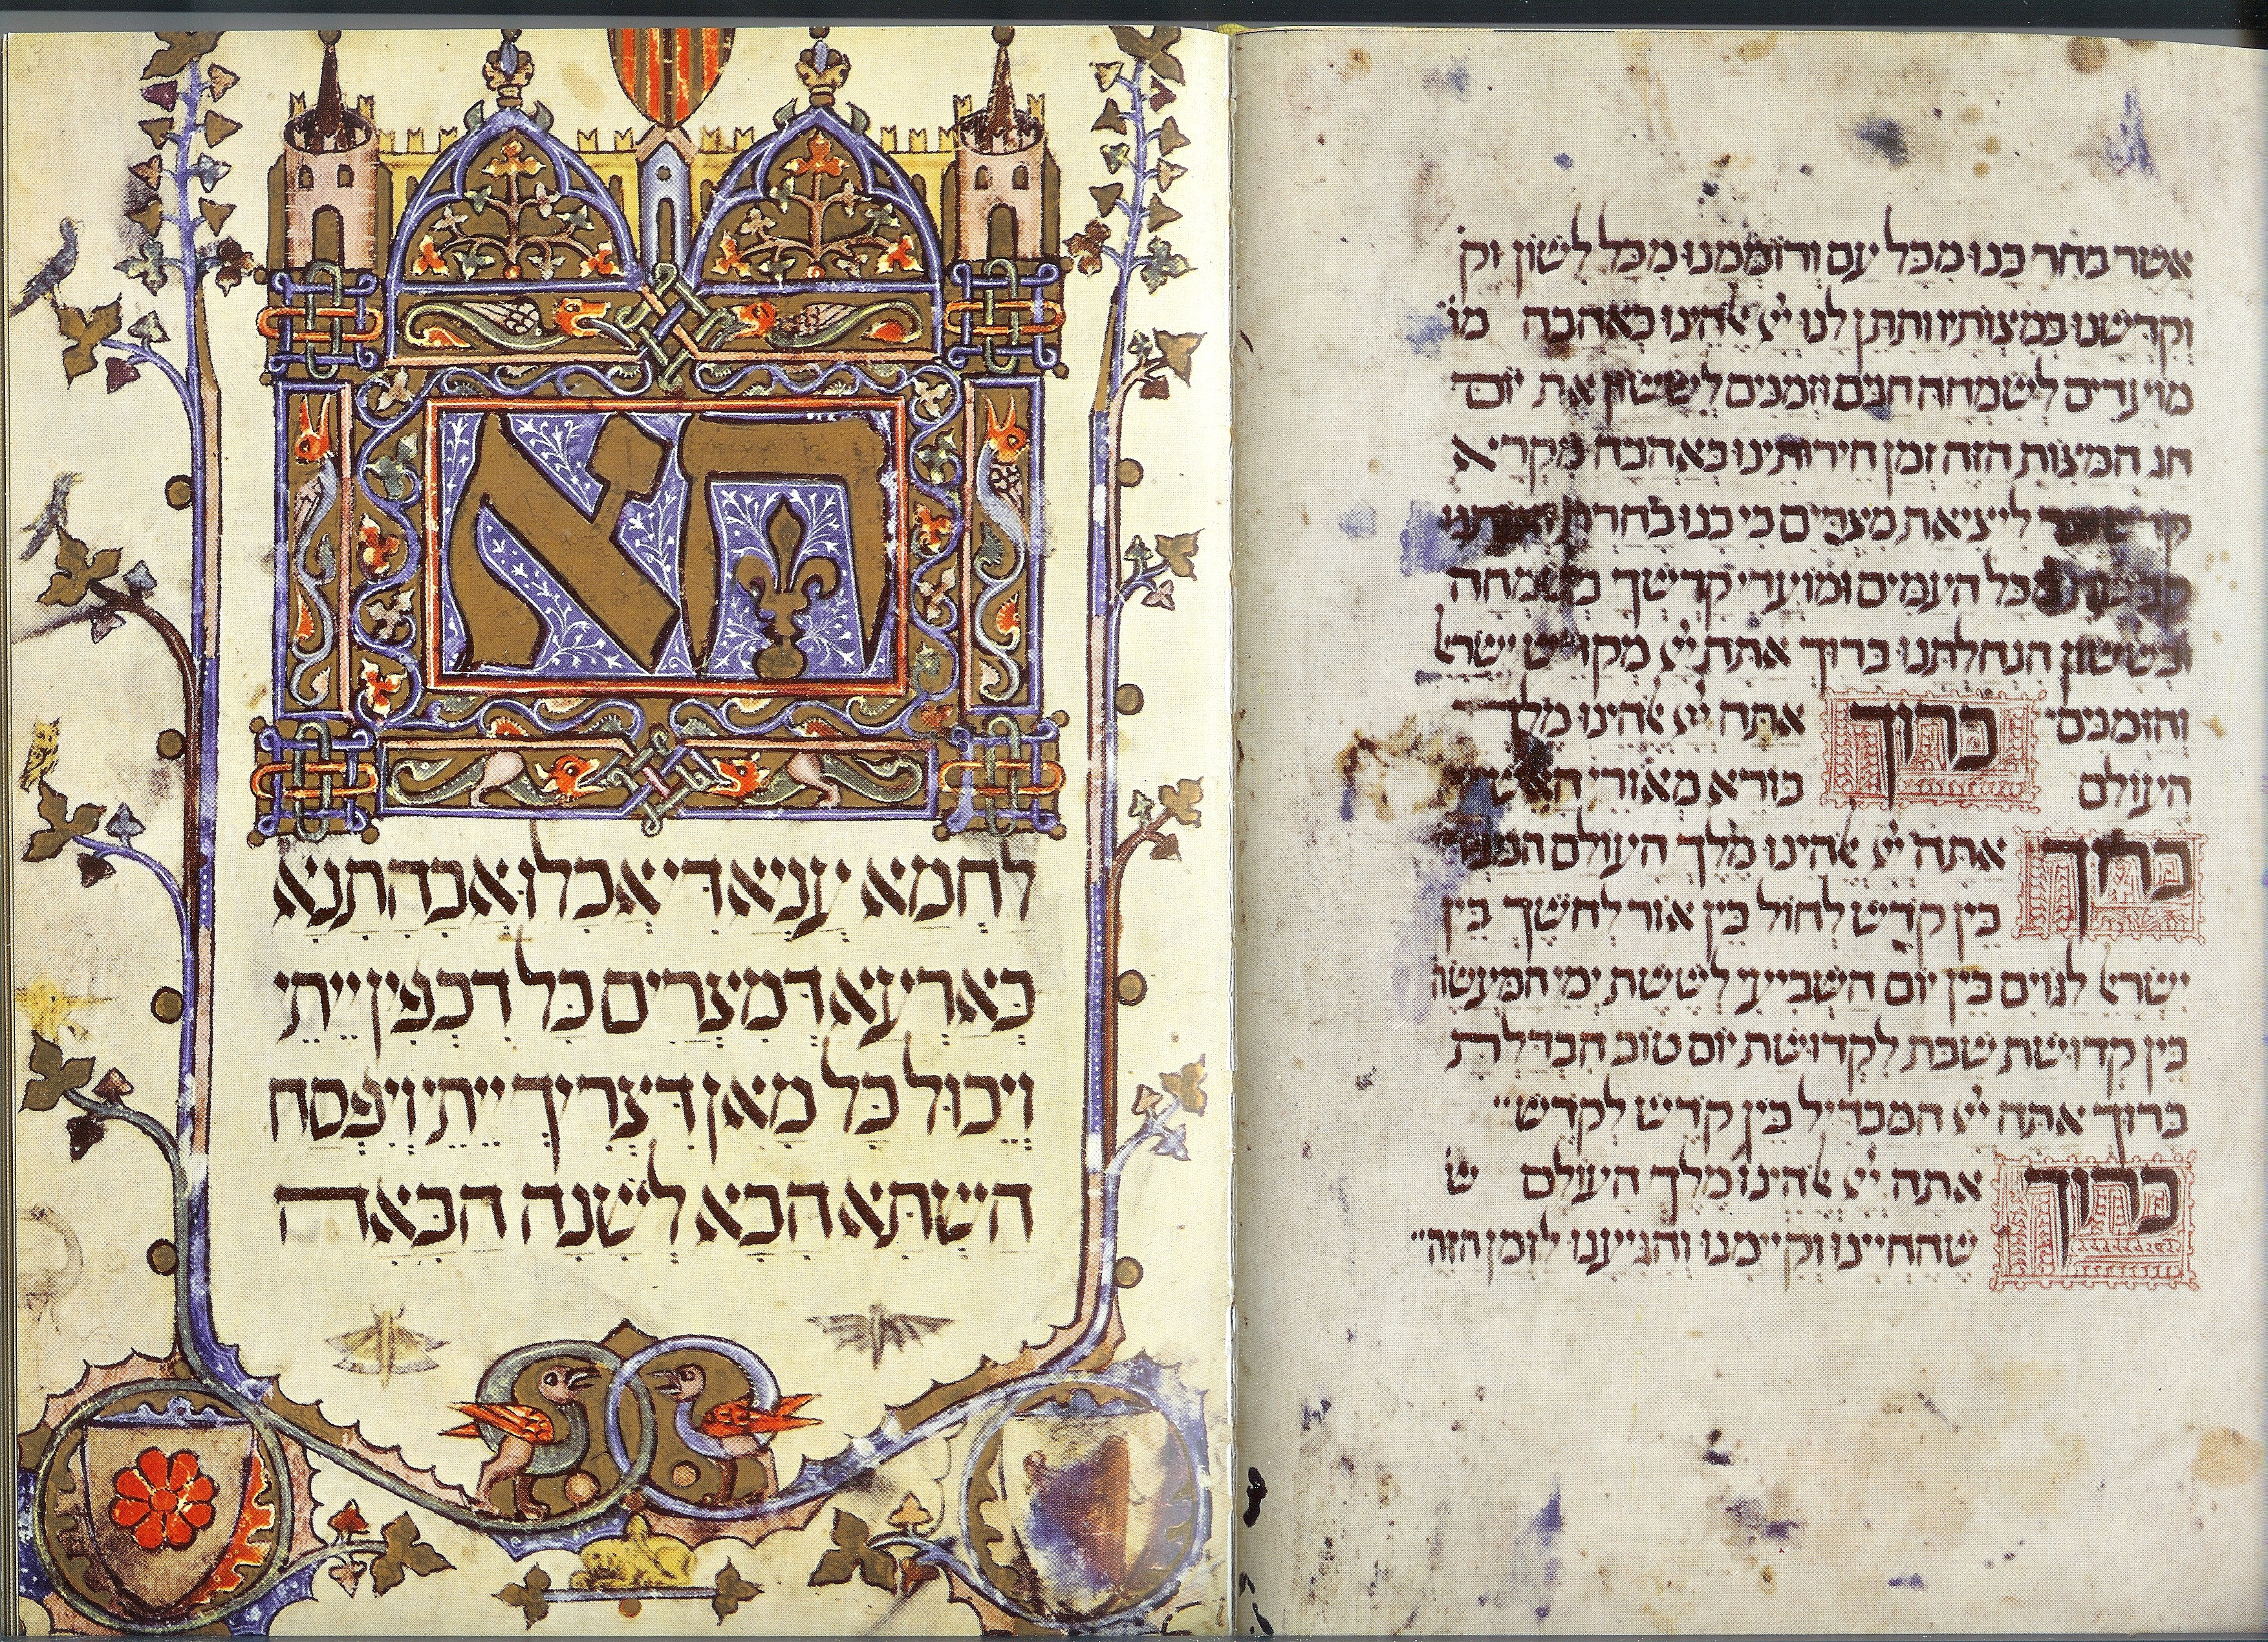 אשר בחר בנו מכל עם ורוממנו מכל לשון וק
וקדשנו במצותיו ותתן לנו ייי אלהינו באהבה מו
מועדים לשמחה חגים וזמנים לששון את יום
חג המצות הזה זמן חירותינו באהבה מקרא
קדש ליציאת מצרים כי בנו בחרת
מכל העמים ומועדי קדשך בשמחה
ובששון הנחלתנו ברוך אתה ייי מקדש ישראל
והזמנים ברוך אתה ייי אלהינו מלך
העולם בורא מאורי האש
ברוך אתה ייי אלהינו מלך העולם
בין קדש לחול בין אור לחשך בין
ישראל לגוים בין יום השביעי לששת ימי המעשה
בין קדושת שבת לקדושת יום טוב הבדלת
ברוך אתה ייי המבדיל בין קדש לקדש
ברוך אתה ייי אלהינו מלך העולם ש
שהחיינו וקיימנו והגיענו לזמן הזה
הא
לחמא עניא די אכלו אבהתנא
בארעא דמצרים כל דכפין ייתי
ויכול כל מאן דצריך ייתי ויפסח
השתא הכא לשנה הבאה